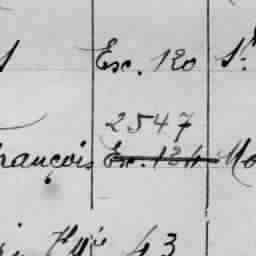 Esc. 120 St
2547
François Esc. 124 Mo
43